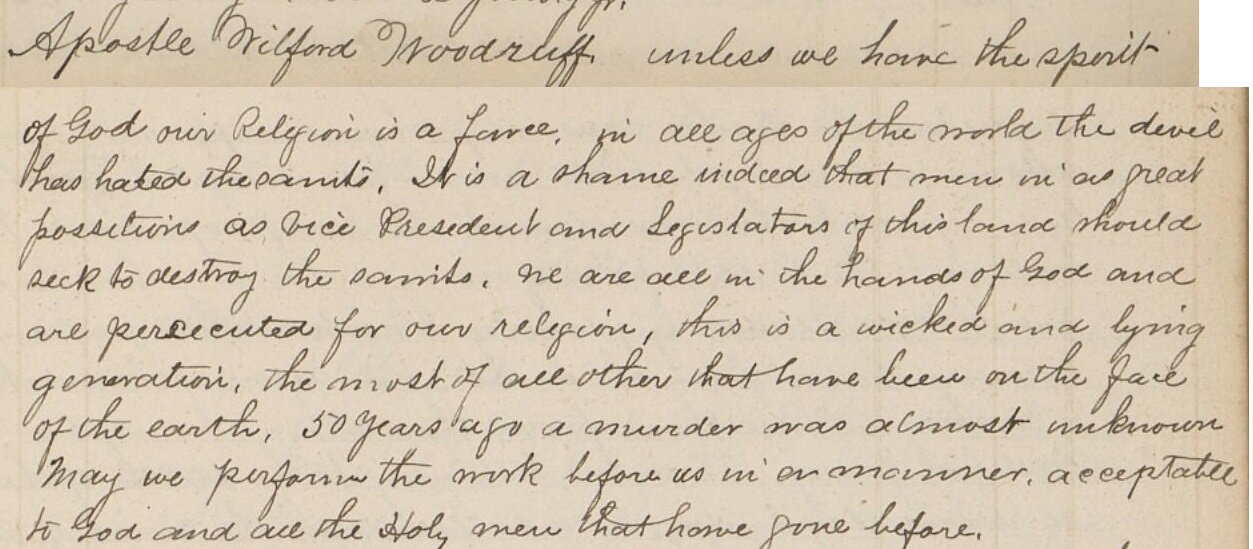 Apostle Wilford Woodruff. unless we have the spirit
of God our Religion is a farce. in all ages of the world the devil
has hated the saints. It is a shame indeed that men in as great
possitions as Vice Presedent and Legislators of this land should
seek to destroy the saints. We are all in the hands of God and
are percecuted for our religion, this is a wicked and lying
generation, the most of all other that have been on the face
of the earth. 50 Years ago a murder was almost unknown
May we perform the work before us in a manner. acceptable
to God and all the Holy men that have gone before.